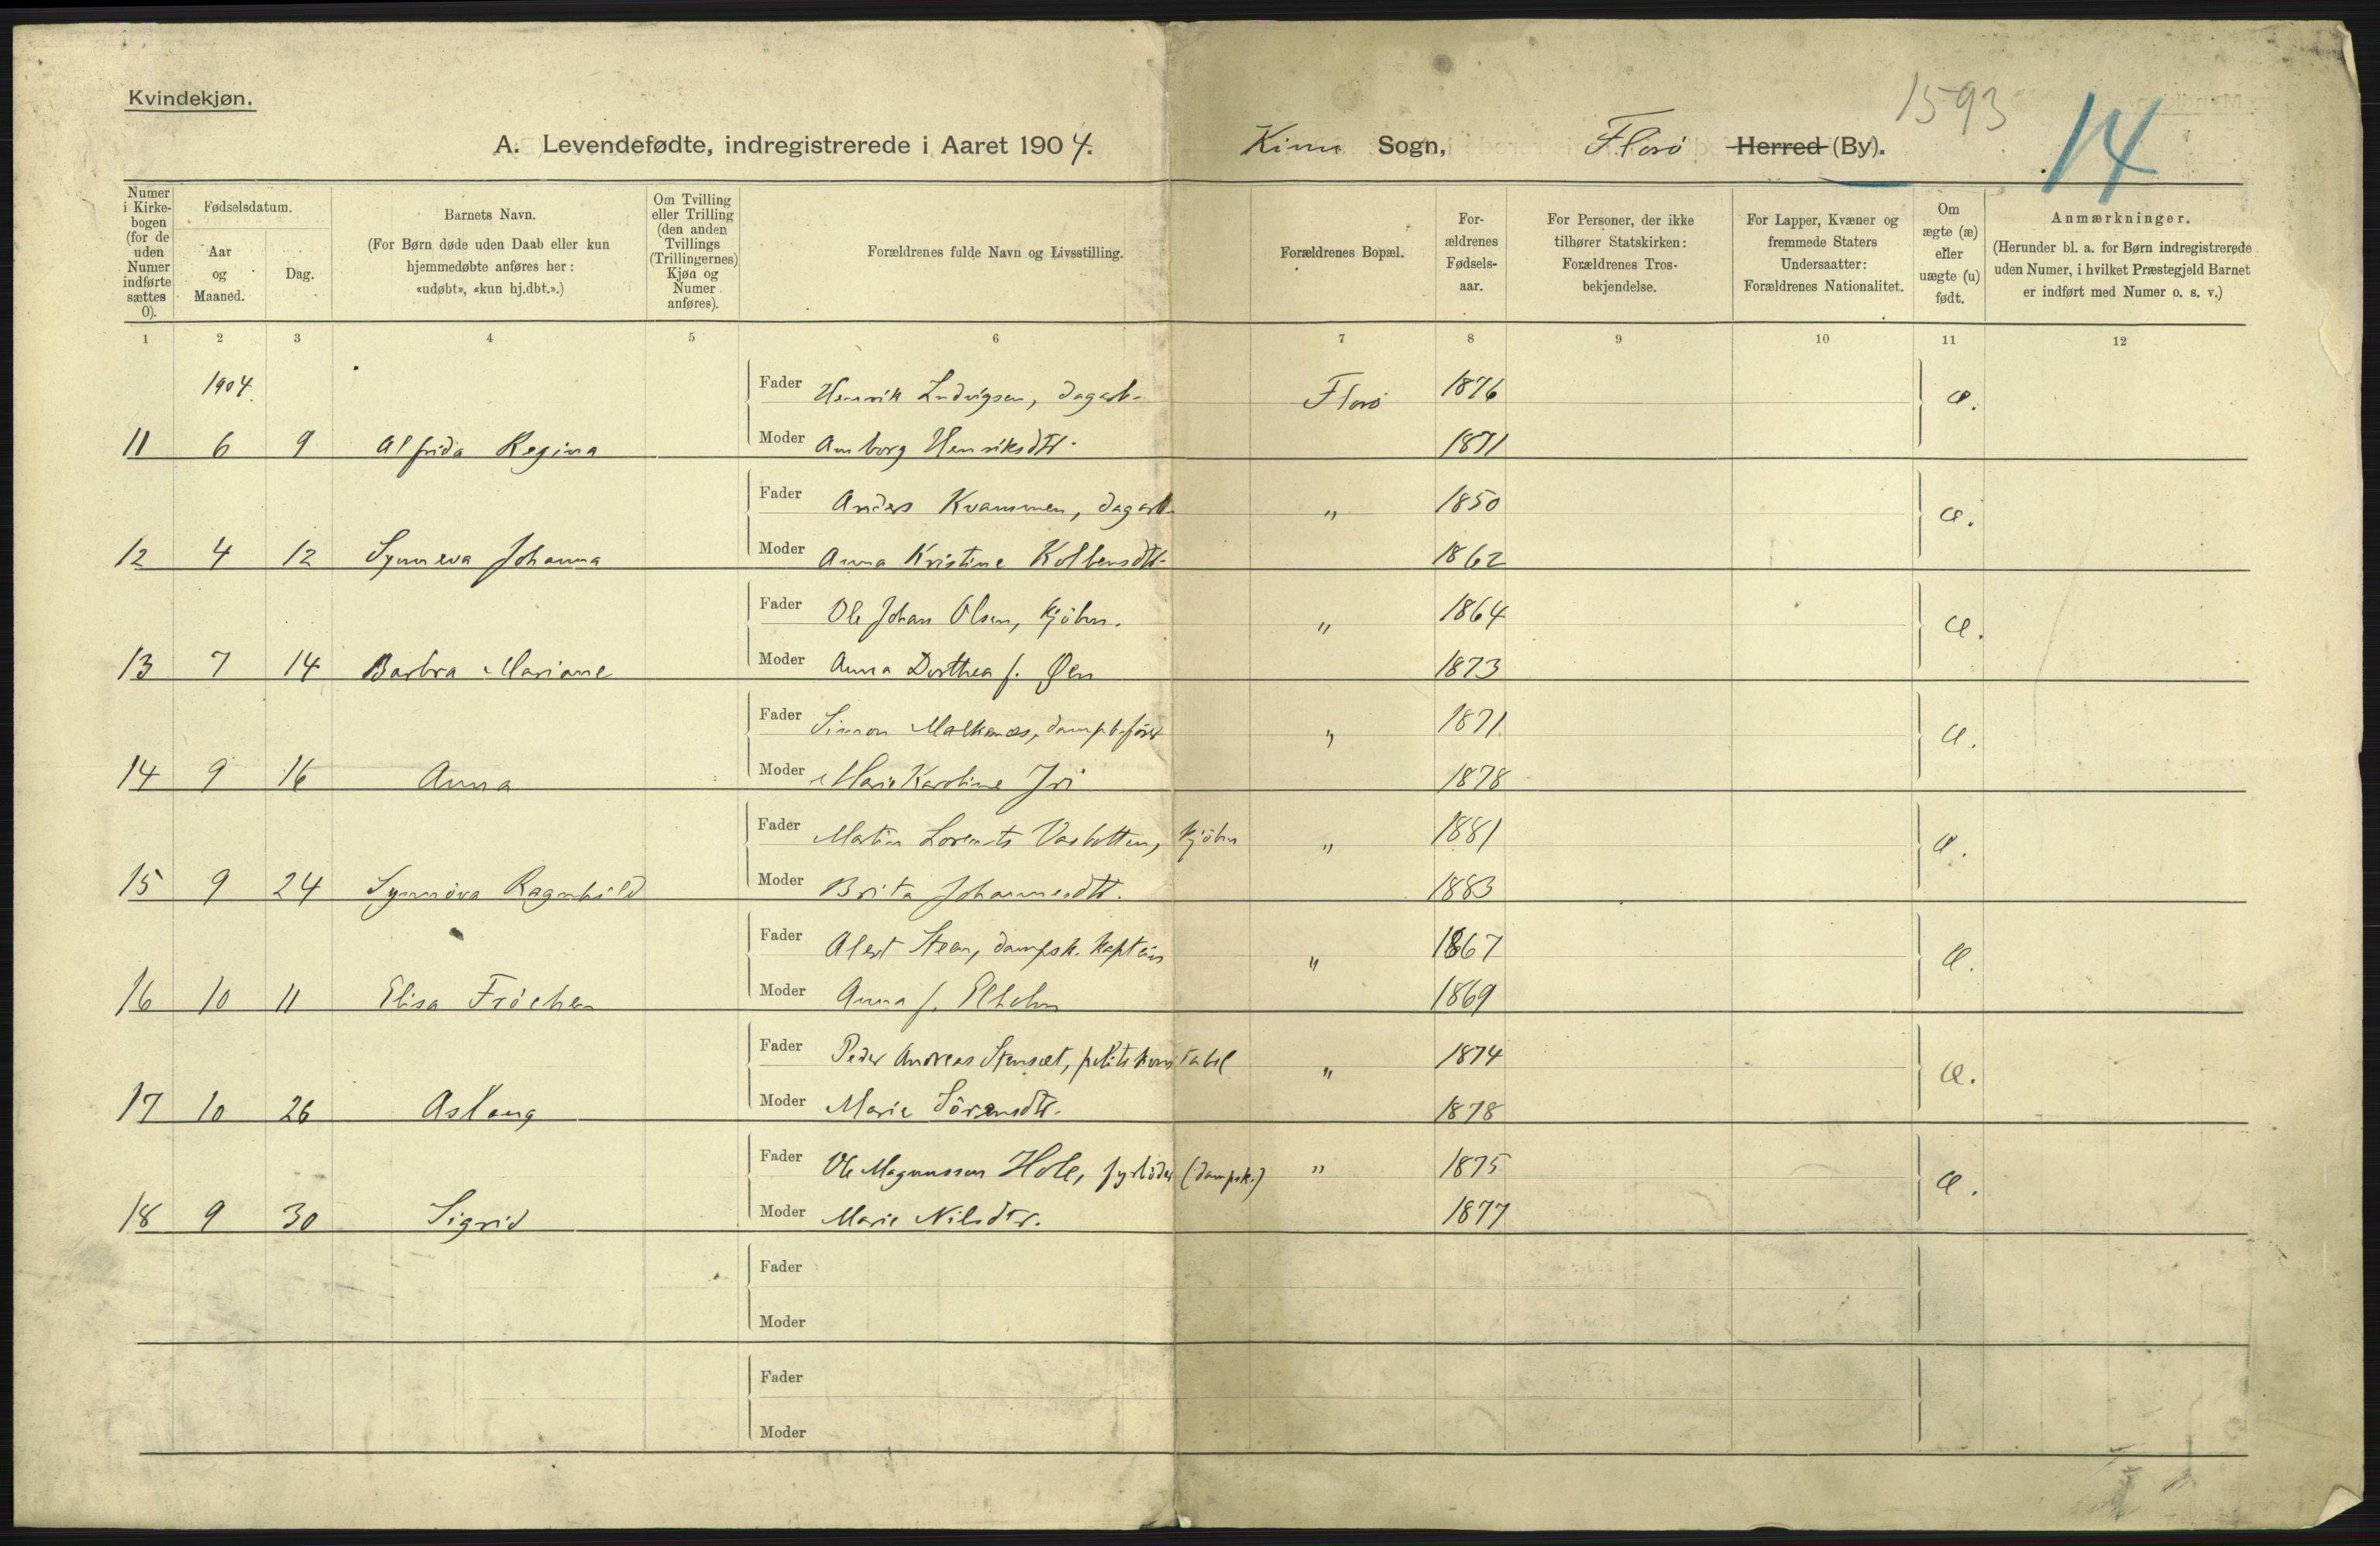 Kvindekjøn.
1593
14
A. Levendefødte, indregistrerede i Aaret 1904. Kinn Sogn, Florø Herred (By).
Numer i Kirke-bogen (for de uden Numer indførte sættes 0).
Fødselsdatum.
Aar og Maaned.
Dag.
Barnets Navn.
(For Børn døde uden Daab eller kun hjemmedøbte anføres her: «udøbt», «kun hj.dbt.».)
Om Tvilling eller Trilling (den anden Tvillings (Trillingernes) Kjøn og Numer anføres).
Forældrenes fulde Navn og Livsstilling.
Forældrenes Bopæl.
For-ældrenes Fødsels-aar.
For Personer, der ikke tilhører Statskirken: Forældrenes Tros-bekjendelse.
For Lapper, Kvæner og fremmede Staters Undersaatter: Forældrenes Nationalitet.
Om ægte (æ) eller uægte (u) født.
Anmærkninger.
(Herunder bl. a. for Børn indregistrerede uden Numer, i hvilket Præstegjeld Barnet er indført med Numer o. s. v.)
1 2 3 4 5 6 7 8 9 10 11 12
1904. Fader Henrik Ludvigsen, dagarb. Florø 1876 æ.
11 6 9 Alfrida Regina Moder Amborg Henriksdtr. 1871
Fader Anders Kvammen, dagarb. " 1850 æ.
12 4 12 Synneva Johanna Moder Anna Kristine Kolbensdtr. 1862
Fader Ole Johan Olsen, kjöbm. " 1864 æ.
13 7 14 Barbra Mariane Moder Anna Dorthea f. Øen 1873
Fader Simon Malkenæs, dampb.förer " 1871 æ.
14 9 16 Anna Moder Marie Karoline 1878
Fader Martin Lorents Vasbotten, kjöbm " 1881 æ.
15 9 24 Synnöva Ragnhild Moder Brita Johannesdtr. 1883
Fader Alert Steen, dampsk. kaptein " 1867 æ.
16 10 11 Elisa Fröchen Moder Anna f. 1869
Fader Peder Andreas Stensæt, politikonstabel " 1874 æ.
17 10 26 Aslaug Moder Marie Sörensdtr. 1878
Fader Ole Magnussen Hole, fyrböder (dampsk.) " 1875 æ.
18 9 30 Sigrid Moder Marie Nilsdtr. 1877
Fader
Moder
Fader
Moder